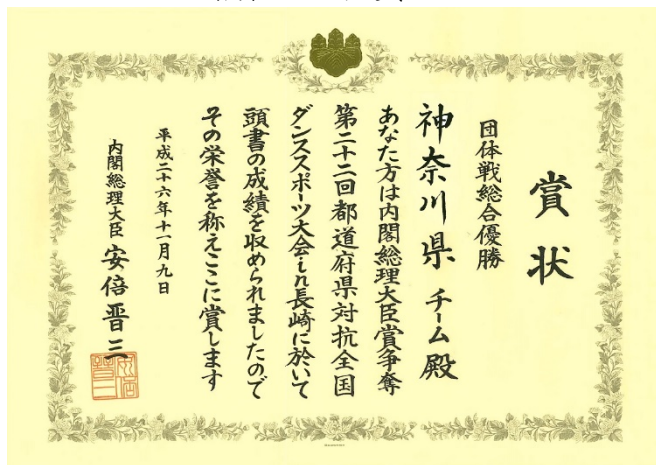 賞状
団体戦総合優勝
神奈川県 チーム殿
あなた方は内閣総理大臣賞争奪
第二十二回都道府県対抗全国
ダンススポーツ大会in長崎に於いて
頭書の成績を収められましたので
その栄誉を称えここに賞します
平成二十六年十一月九日
内閣総理大臣 安倍晋三